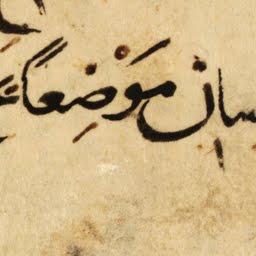 سان مَوْضِعاً